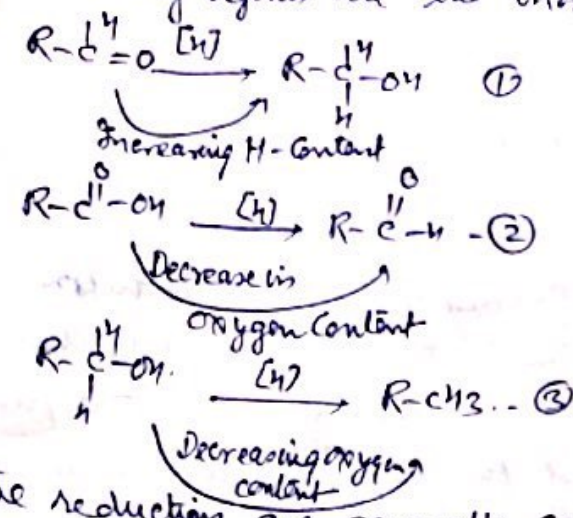 H
R-C=O [H] → R-C-OH ①
H
H
Increasing H-Content
O
R-C-OH [H] → R-C-H - ②
O
Decrease in
Oxygen Content
H
R-C-OH. [H] → R-CH3.. ③
H
Decreasing oxygen
content
reduction